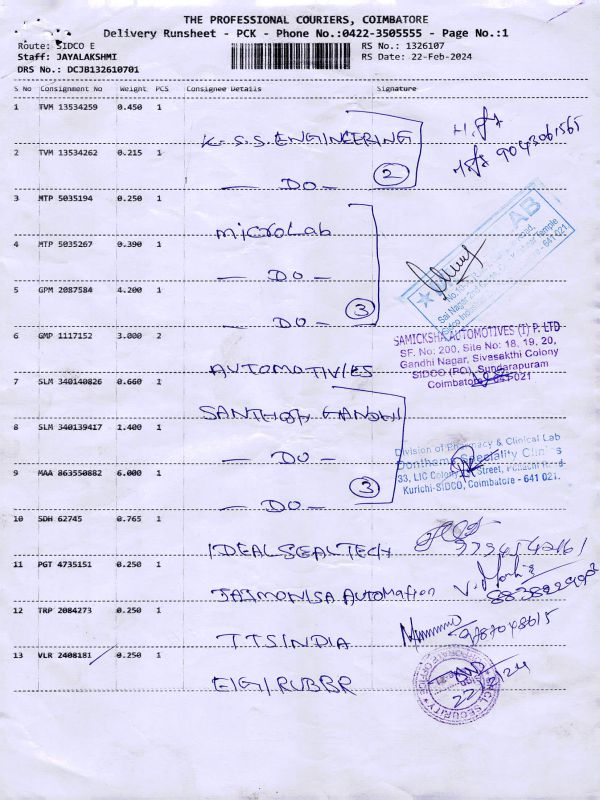 THE PROFESSIONAL COURIERS, COIMBATORE
Delivery Runsheet - PCK - Phone No.:0422-3505555 - Page No.:1
Route: SIDCO E
RS No.: 1326107
Staff: JAYALAKSHMI
RS Date: 22-Feb-2024
DRS No.: DCJB132610701
S No Consignment No Weight PCS Consignee Details Signature
1 TVM 13534259 0.450 1
K.S.S.ENGINEERING
2 TVM 13534262 0.215 1
9043061565
— DO — 2
3 MTP 5035194 0.250 1
microLab
4 MTP 5035267 0.390 1
— DO —
5 GPM 2087584 4.200 1
— DO — 3
6 GMP 1117152 3.000 2
SAMICKSHA AUTOMOTIVES (I) P. LTD
SF. No: 200, Site No: 18, 19, 20,
Gandhi Nagar, Sivasakthi Colony
SIDCO (PO), Sundarapuram
Coimbatore - 641 021
AUTOMOTIVIES
7 SLM 340140826 0.660 1
SANTHOSH GANDHI
8 SLM 340139417 1.400 1
— DO —
Division of Pharmacy & Clinical Lab
Speciality Clinics
33, LIC Colony Street, Pollachi Road
Kurichi-SIDCO, Coimbatore - 641 021.
9 MAA 863550882 6.000 1
— DO — 3
10 SDH 62745 0.765 1
IDEALSEALTECH
11 PGT 4735151 0.250 1
JAIMONISA AUTOMATION
12 TRP 2084273 0.250 1
TTSINDIA 9787048615
13 VLR 2408181 0.250 1
E|G|.RUBBR